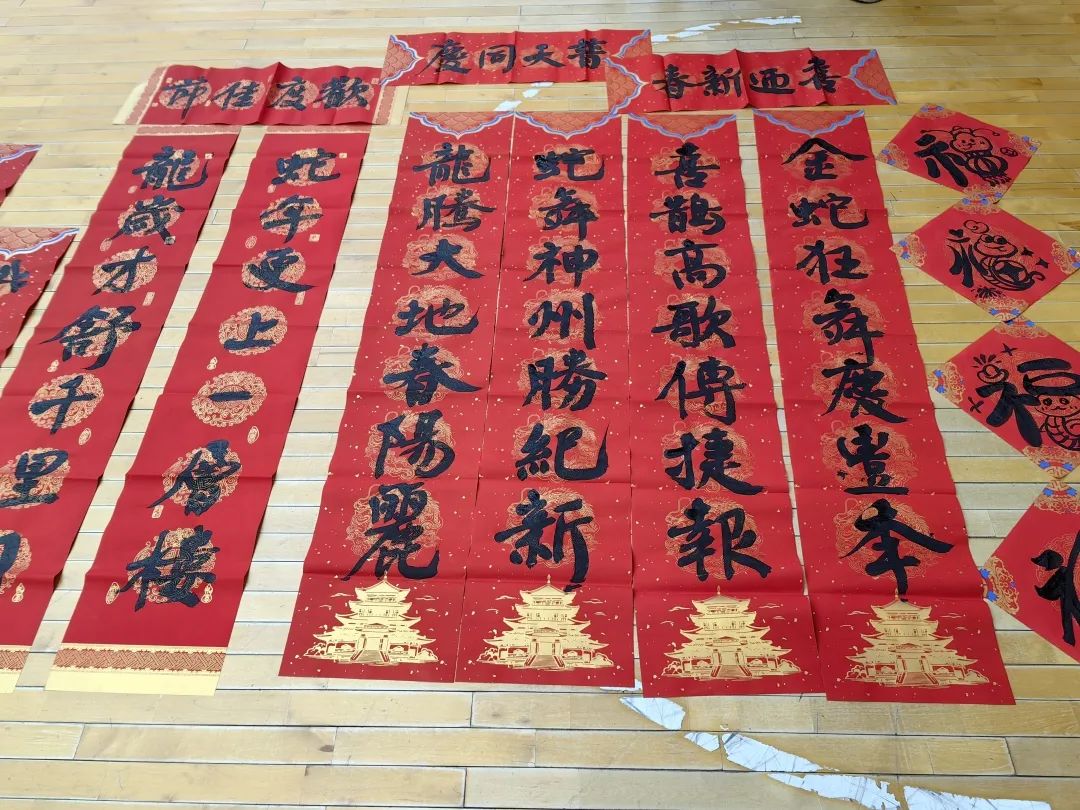 喜迎新春
普天同慶
歡度佳節
金蛇狂舞慶豐年
喜鵲高歌傳捷報
蛇舞神州勝紀新
龍騰大地春陽麗
蛇年更上一層樓
龍歲才舒千里目
福
福
福